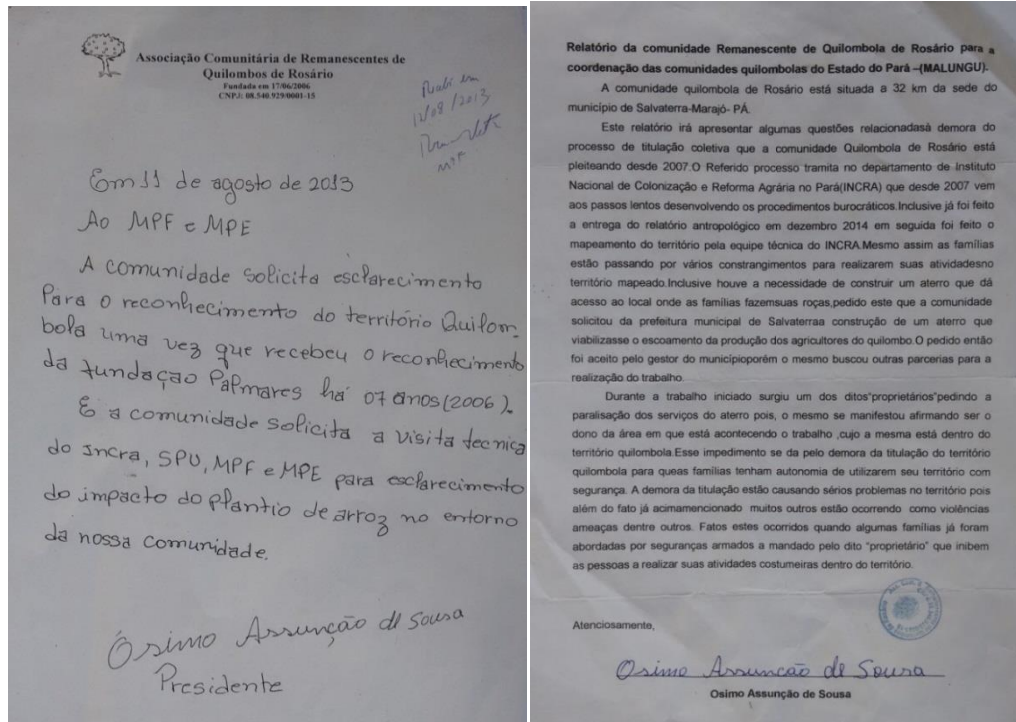 Associação Comunitária de Remanescentes de
Quilombos de Rosário
Fundada em 17/06/2006
CNPJ: 08.540.929/0001-15
12/08/2013
Em 11 de agosto de 2013
Ao MPF e MPE
A comunidade solicita esclarecimento
Para o reconhecimento do território Quilom-
bola uma vez que recebeu o reconhecimento
da fundação Palmares há 07 anos (2006).
E a comunidade solicita a visita tecnica
do Incra, SPU, MPF e MPE para esclarecimento
do impacto do plantio de arroz no entorno
da nossa comunidade.
Osimo Assunção de Sousa
Presidente
Relatório da comunidade Remanescente de Quilombola de Rosário para a
coordenação das comunidades quilombolas do Estado do Pará –(MALUNGU).
A comunidade quilombola de Rosário está situada a 32 km da sede do
município de Salvaterra-Marajó- PÁ.
Este relatório irá apresentar algumas questões relacionadasà demora do
processo de titulação coletiva que a comunidade Quilombola de Rosário está
pleiteando desde 2007.O Referido processo tramita no departamento de Instituto
Nacional de Colonização e Reforma Agrária no Pará(INCRA) que desde 2007 vem
aos passos lentos desenvolvendo os procedimentos burocráticos.Inclusive já foi feito
a entrega do relatório antropológico em dezembro 2014 em seguida foi feito o
mapeamento do território pela equipe técnica do INCRA.Mesmo assim as famílias
estão passando por vários constrangimentos para realizarem suas atividadesno
território mapeado.Inclusive houve a necessidade de construir um aterro que dá
acesso ao local onde as famílias fazemsuas roças,pedido este que a comunidade
solicitou da prefeitura municipal de Salvaterraa construção de um aterro que
viabilizasse o escoamento da produção dos agricultores do quilombo.O pedido então
foi aceito pelo gestor do municípioporém o mesmo buscou outras parcerias para a
realização do trabalho.
Durante a trabalho iniciado surgiu um dos ditos"proprietários"pedindo a
paralisação dos serviços do aterro pois, o mesmo se manifestou afirmando ser o
dono da área em que está acontecendo o trabalho ,cujo a mesma está dentro do
território quilombola.Esse impedimento se da pelo demora da titulação do território
quilombola para queas famílias tenham autonomia de utilizarem seu território com
segurança. A demora da titulação estão causando sérios problemas no território pois
além do fato já acimamencionado muitos outros estão ocorrendo como violências
ameaças dentre outros. Fatos estes ocorridos quando algumas famílias já foram
abordadas por seguranças armados a mandado pelo dito "proprietário" que inibem
as pessoas a realizar suas atividades costumeiras dentro do território.
Atenciosamente,
Osimo Assunção de Sousa
Osimo Assunção de Sousa